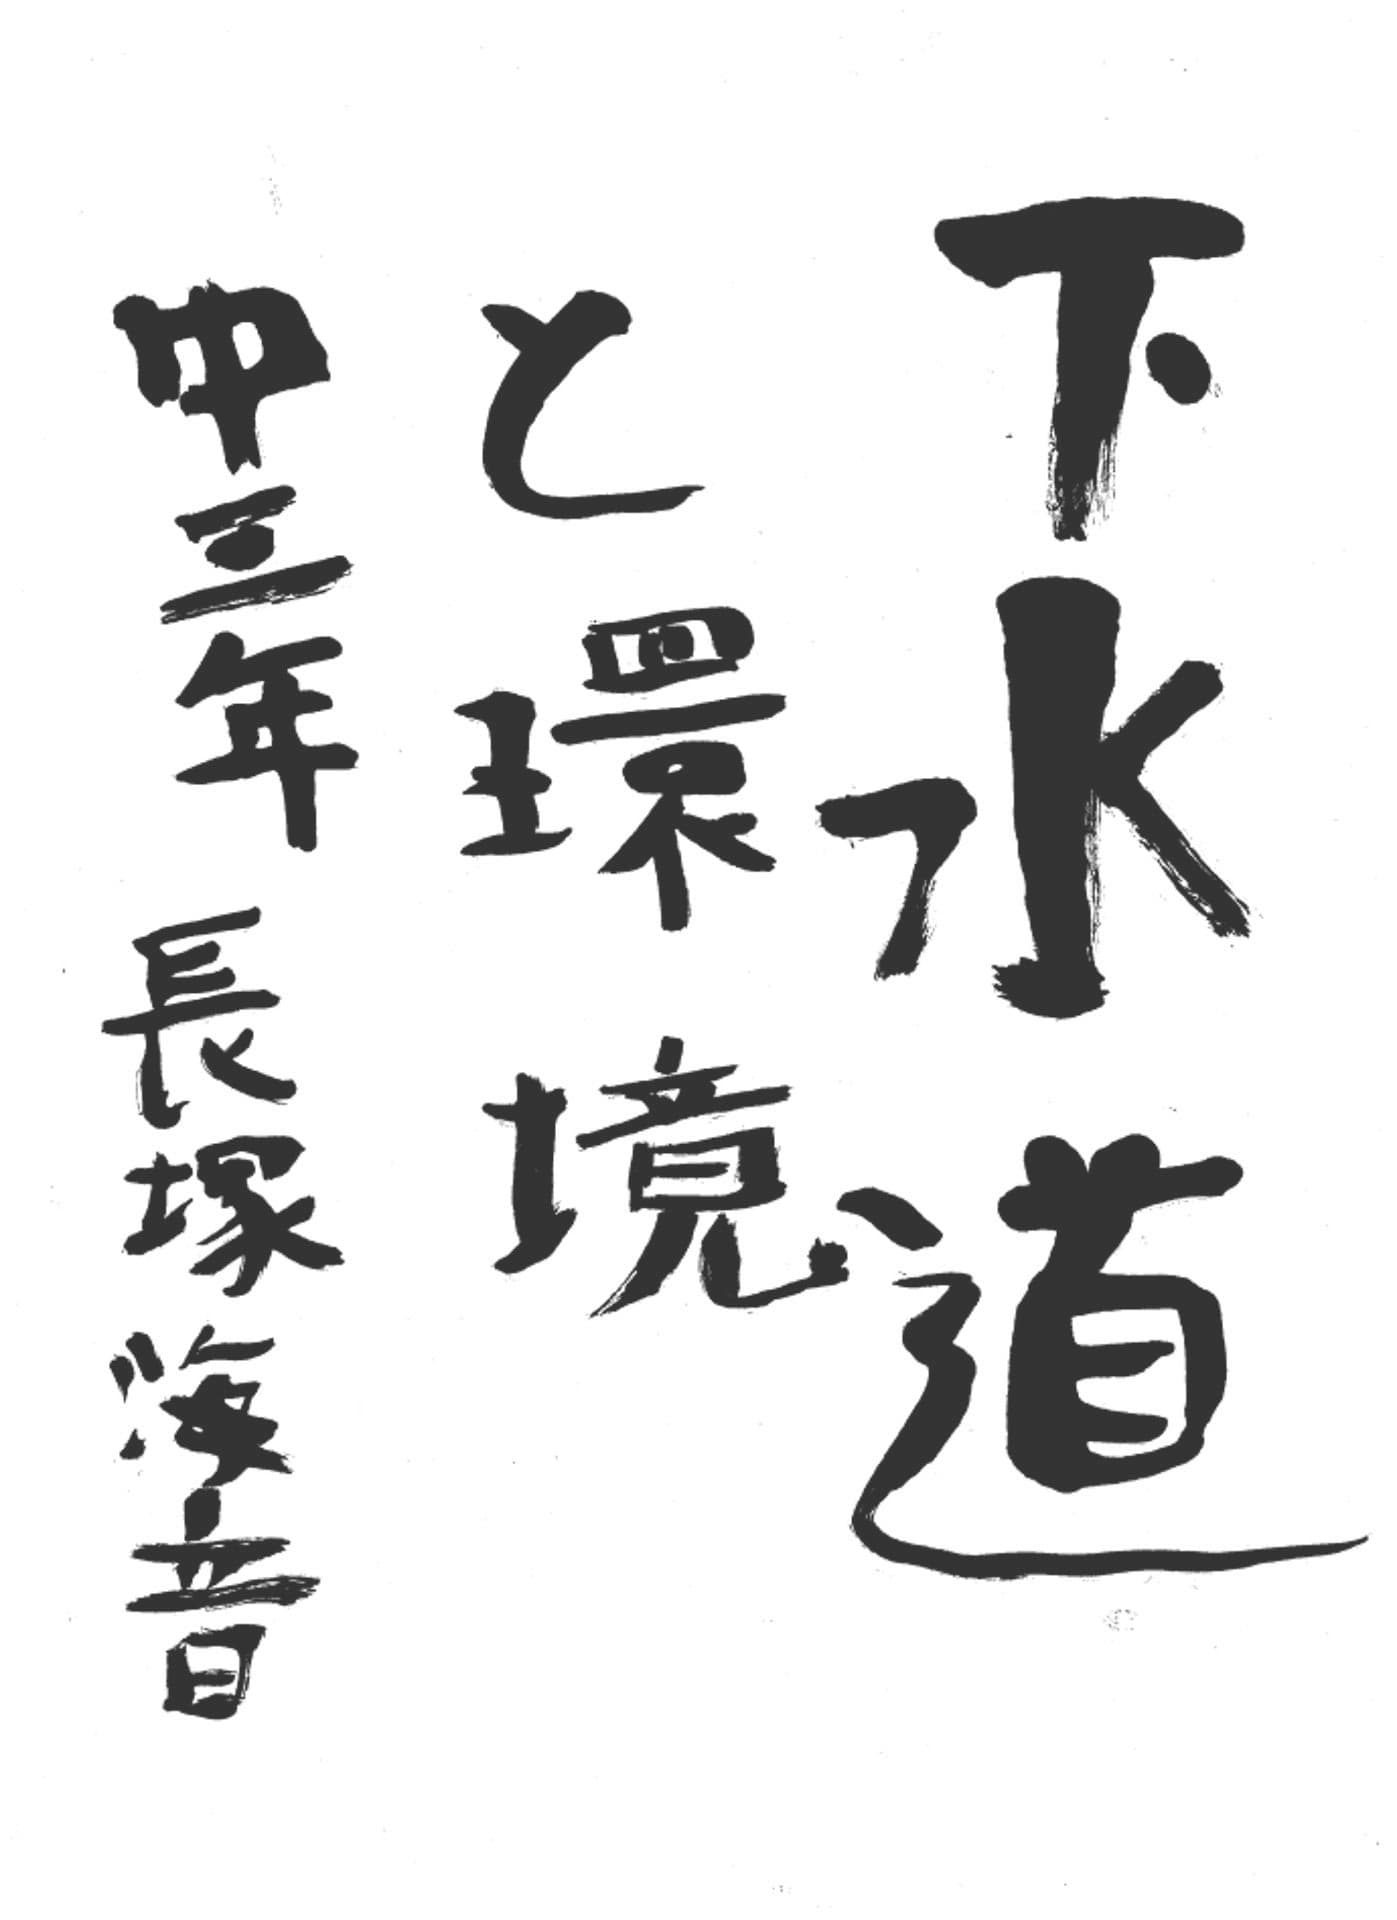 下水道
と環境
中三年 長塚海音